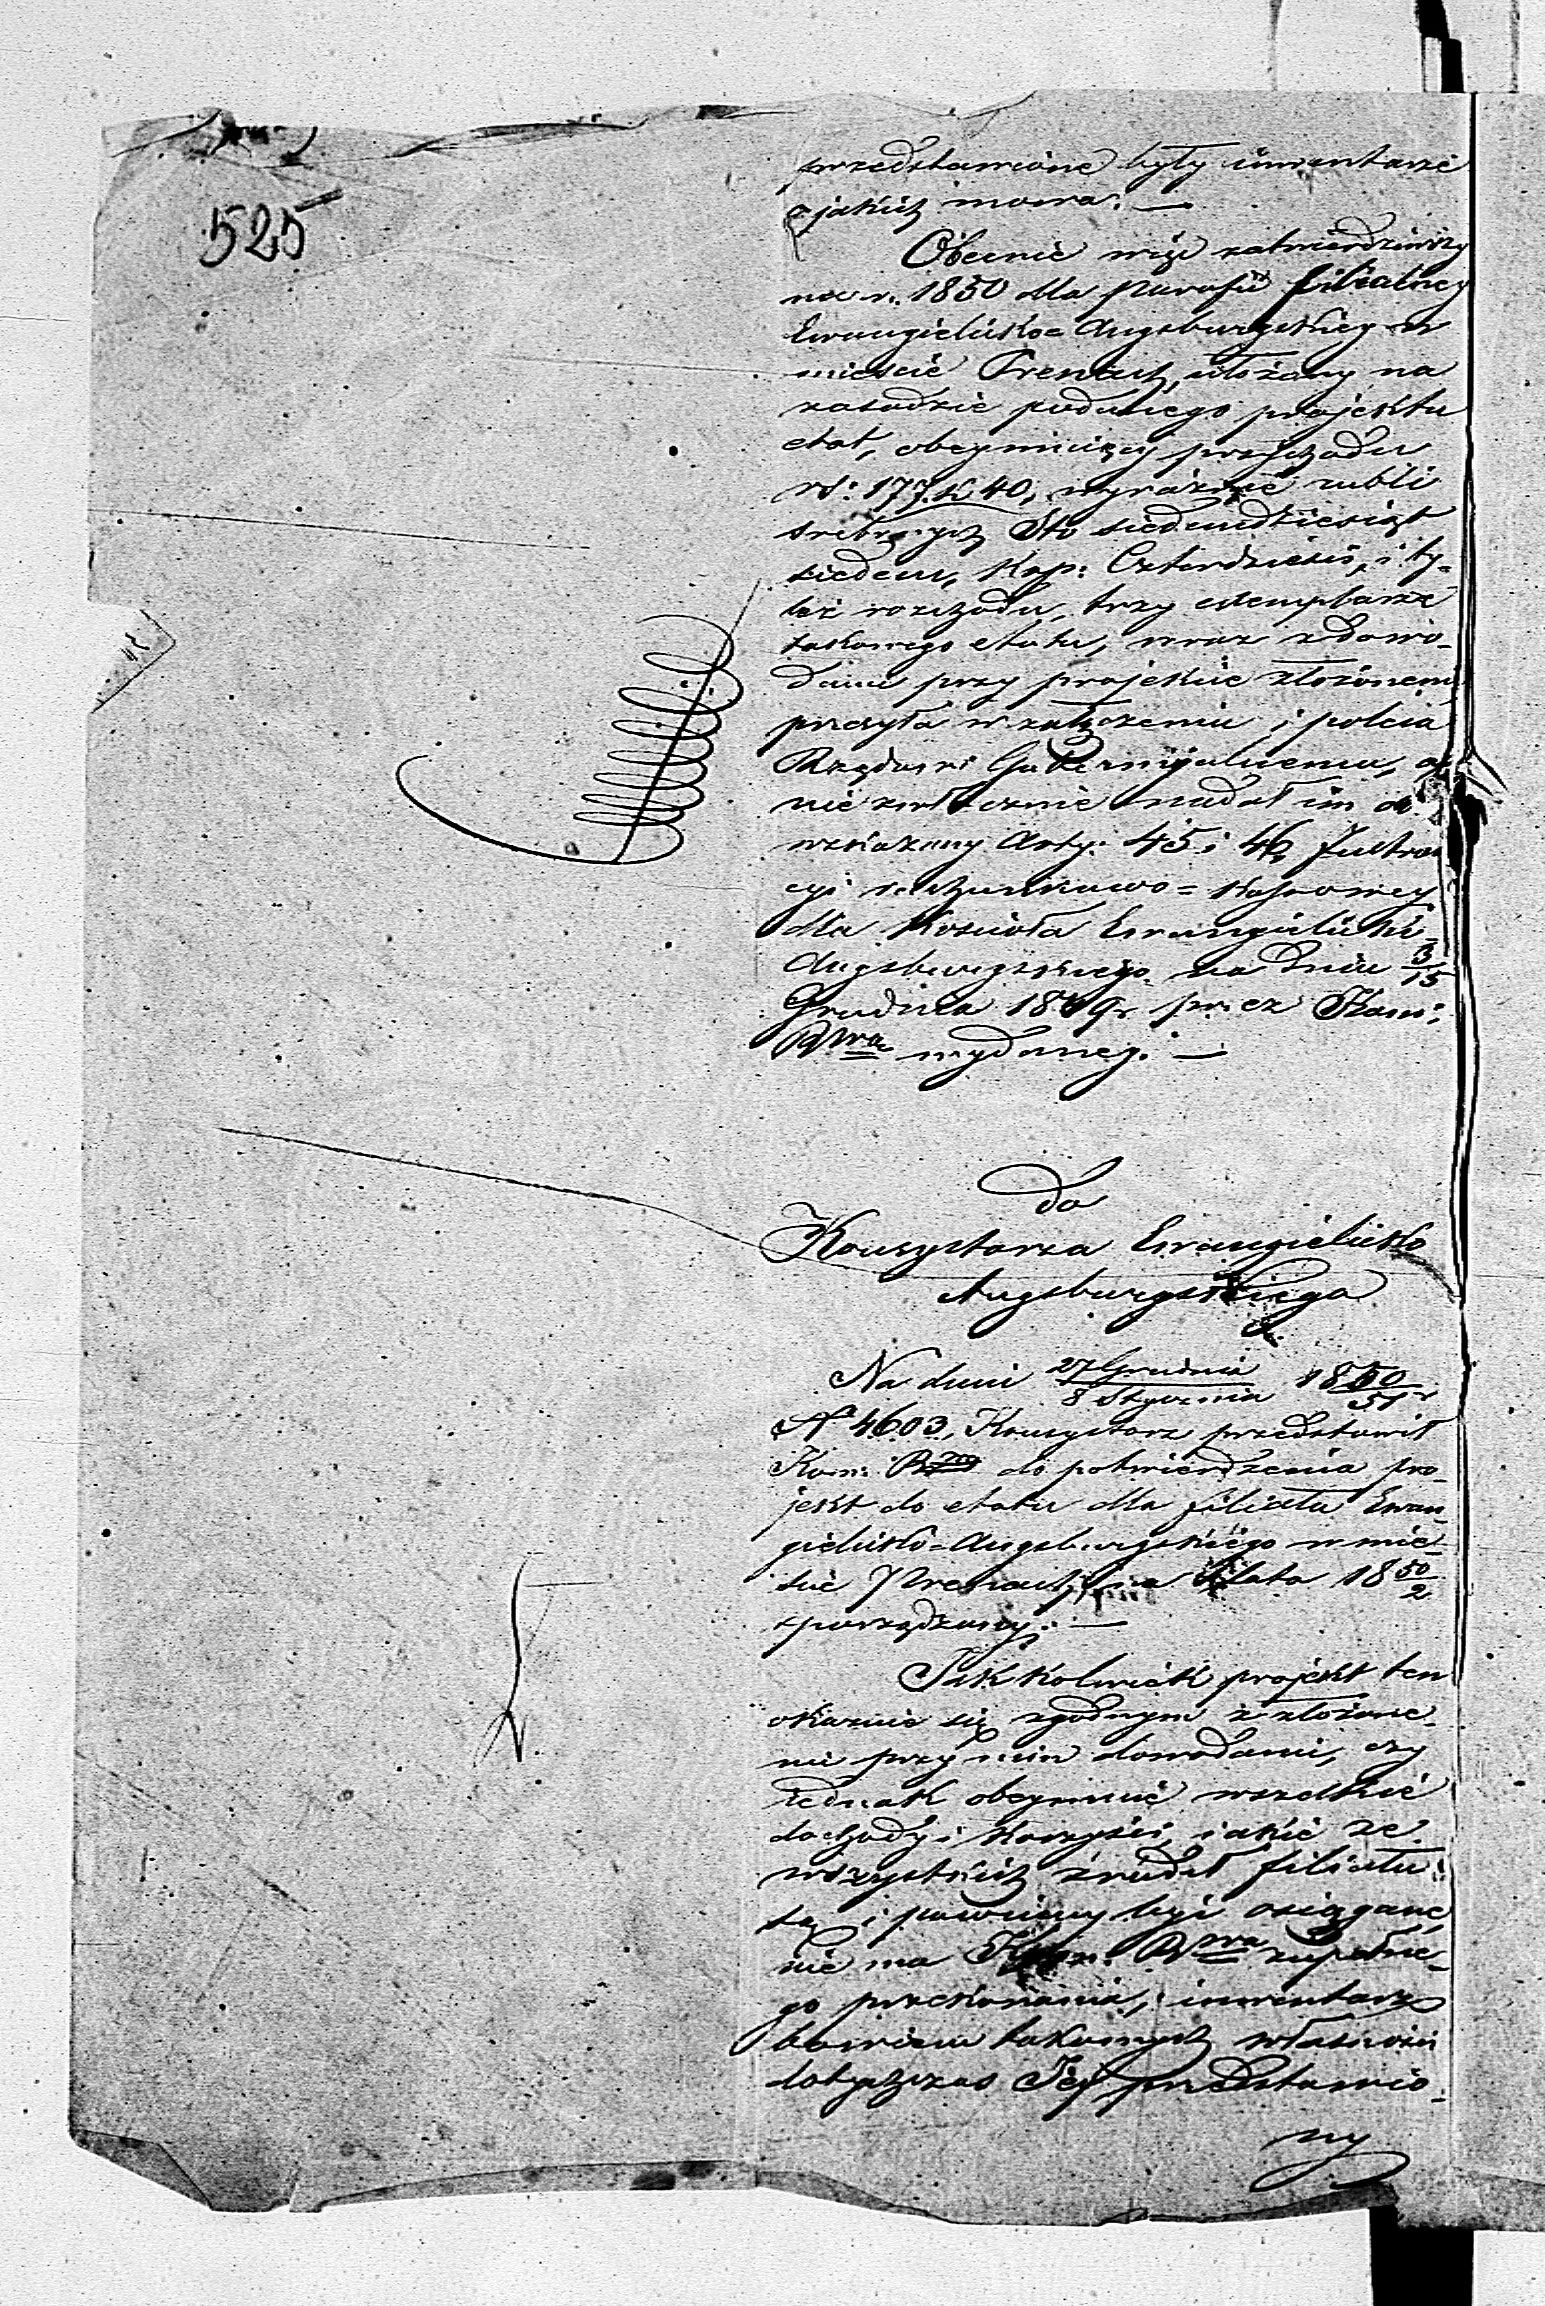 525
przedstawione były inwentarze
o jakich mowa. —
Obecnie więc zatwierdziwszy
na r. 1850 dla parafii filialney
Ewangielicko-Augsburgskiey w
mieście Prenach, ułożony na
zasadzie podanego projektu
etat, obeymuiący przychodu
rs: 177 k 40, wyraźnie rubli
srebrnych Sto siedmdziesiąt
siedem, kop: Czterdzieści, i ty-
leż rozchodu, trzy exemplarze
takowego etatu, wraz z dowo-
dami przy projekcie złożonemi
przesyła w załączeniu i poleca
Rządowi Gubernijalnemu, aby
niezwłocznie nadał im
wskazany Arty: 45 i 46 Instruk
cyi rachunkowo-kassowey
dla Kościoła Ewangielicko-
Augsburgskiego na dniu 3/15
Grudnia 1849 r przez Kom:
Rwą wydaney. —
Do
Konsystorza Ewangielicko
Augsburgskiego
Na dniu 27 Grudnia/8 Stycznia 1850/51 r
N 4603, Konsystorz przedstawił
Kom: do potwierdzenia pro-
jekt do etatu dla filiału Ewan-
gielicko-Augsburgskiego w mie-
ście Prenach, na lata 18 50/2
sporządzony. —
Jakkolwiek projekt ten
okazuie się zgodnym z złożone-
mi przy nim dowodami, czy
iednak obeymuie wszelkie
dochody i korzyści, iakie ze
wszystkich źródeł filiału
są i powinny być osiągane,
nie ma Kom. Rwa zupełne-
go przekonania, inwentarz
bowiem takowych własności
dotychczas Jey przedstawio-
ny